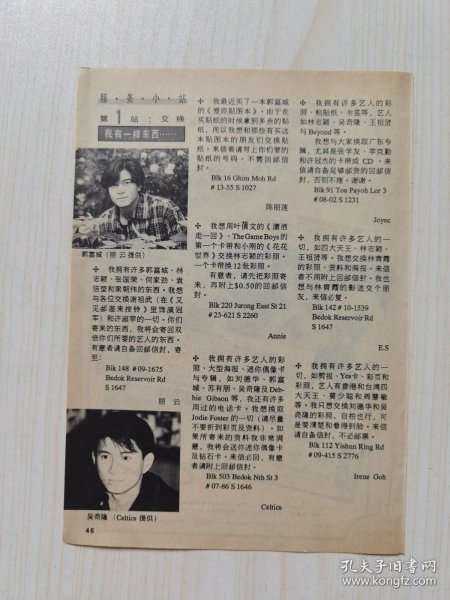 服·务·小·站
第1站：交换
我有一样东西……
郭富城（丽云提供）
✣ 我拥有许多郭富城、林
志颖、张国荣、何家劲、袁
洁莹和梁朝伟的东西。我想
与各位交换谢祖武（在《又
见邮差来按铃》里饰演冠
军）和许淑苹的一切，你们
寄来的东西，我将会寄回双
倍你们所要的艺人的东西。
有意者请自备回邮信封，寄
至：
Blk 148 #09-1675
Bedok Reservoir Rd
S 1647
丽云
吴奇隆（Celtics 提供）
46
✣ 我最近买了一本郭富城
的《爱你贴图本》。由于在
买贴纸的时候拿到多余的贴
纸，所以我想和那些有买这
本贴图本的朋友们交换贴
纸。来信者请写上你们要的
贴纸的号码。不需回邮信
封。
Blk 16 Ghim Moh Rd
#13-55 S 1027
陈丽莲
✣ 我想用叶蒨文的《潇洒
走一回》、The Game Boys的
第一个卡带和小刚的《花花
世界》交换林志颖的彩照。
一个卡带换12张彩照。
有意者，请先把彩照寄
来，再附上$0.50的回邮信
封。
Blk 220 Jurong East St 21
#23-621 S 2260
Annie
✣ 我拥有许多艺人的彩
照、大型海报、迷你偶像卡
与专辑，如刘德华、郭富
城、苏有朋、吴奇隆及Deb-
bie Gibson等，我还有许多
用过的电话卡。我想换取
Jodie Foster的一切（请尽量
不要折到彩页及资料）。如
果所寄来的资料我非常满
意，我将会送你迷你偶像卡
及钻石卡。来信必回，有意
者请附上回邮信封。
Blk 503 Bedok Nth St 3
#07-86 S 1646
Celtics
✣ 我拥有许多艺人的彩
照、粘贴纸、书签等，艺人
如林志颖、吴奇隆、王祖贤
与Beyond等。
我想与大家换取广东专
辑，尤其是张学友、李克勤
和许冠杰的卡带或 CD。来
信请自备足够邮费的回邮信
封，否则不理。谢谢。
Blk 91 Toa Payoh Lor 3
#08-02 S 1231
Joyec
✣ 我拥有许多艺人的一
切，如四大天王、林志颖、
王祖贤等。我想交换林青霞
的彩照、资料和海报。来信
者不用附上回邮信封。我也
想与林青霞的影迷交个朋
友，来信必复。
Blk 142 #10-1539
Bedok Reservoir Rd
S 1647
E.S
✣ 我拥有许多艺人的一
切，如剪报、Yes卡、彩页和
彩照，艺人有香港和台湾四
大天王、莫少聪和周慧敏
等。我只想交换刘德华和吴
奇隆的彩照，自拍也行，可
是要清楚和看得到脸。来信
请自备信封，不必邮票。
Blk 112 Yishun Ring Rd
#09-415 S 2776
Irene Goh
孔夫子旧书网
www.kongfz.com